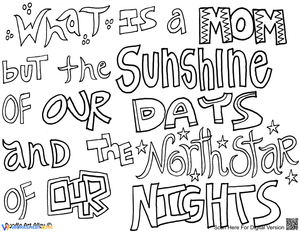 WHAT IS a MOM
but the SUNShINE
OF OUR DAYS
AND THE NORTH STAR
OF OUR NIGHTS
Scan Here For Digital Version